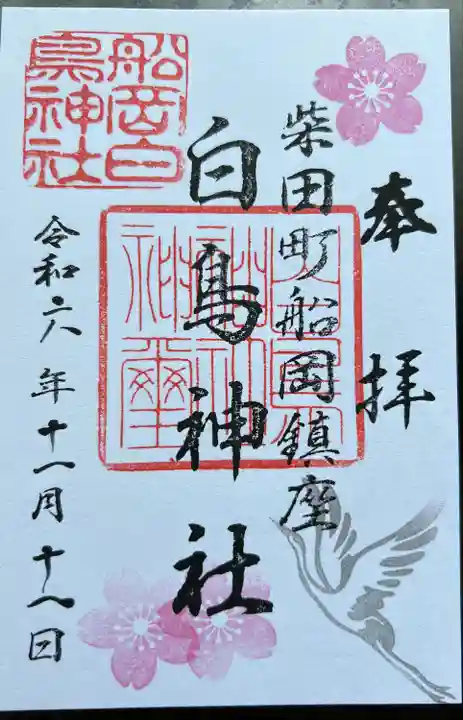 奉拝
柴田町船岡鎮座
白鳥神社
船岡白
鳥神社
令和六年十一月十八日